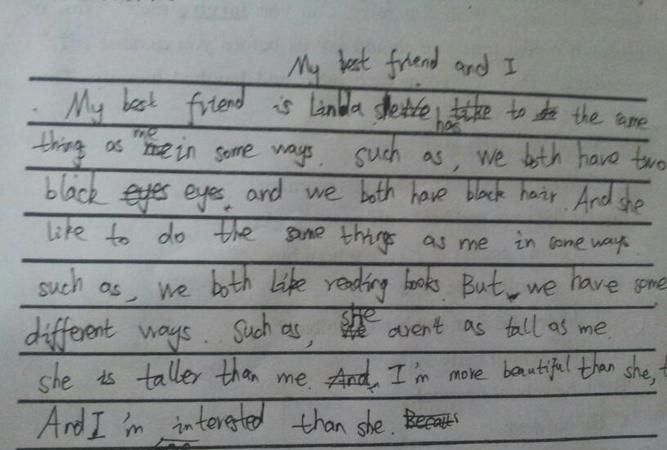 My best friend and I
My best friend is Linda she has to the same
thing as me in some ways. such as, we both have two
black eyes, and we both have black hair. And she
like to do the same things as me in some ways
such as, we both like reading books. But, we have some
different ways. Such as, she aren't as tall as me.
she is taller than me. I'm more beautiful than she,
And I'm interested than she.